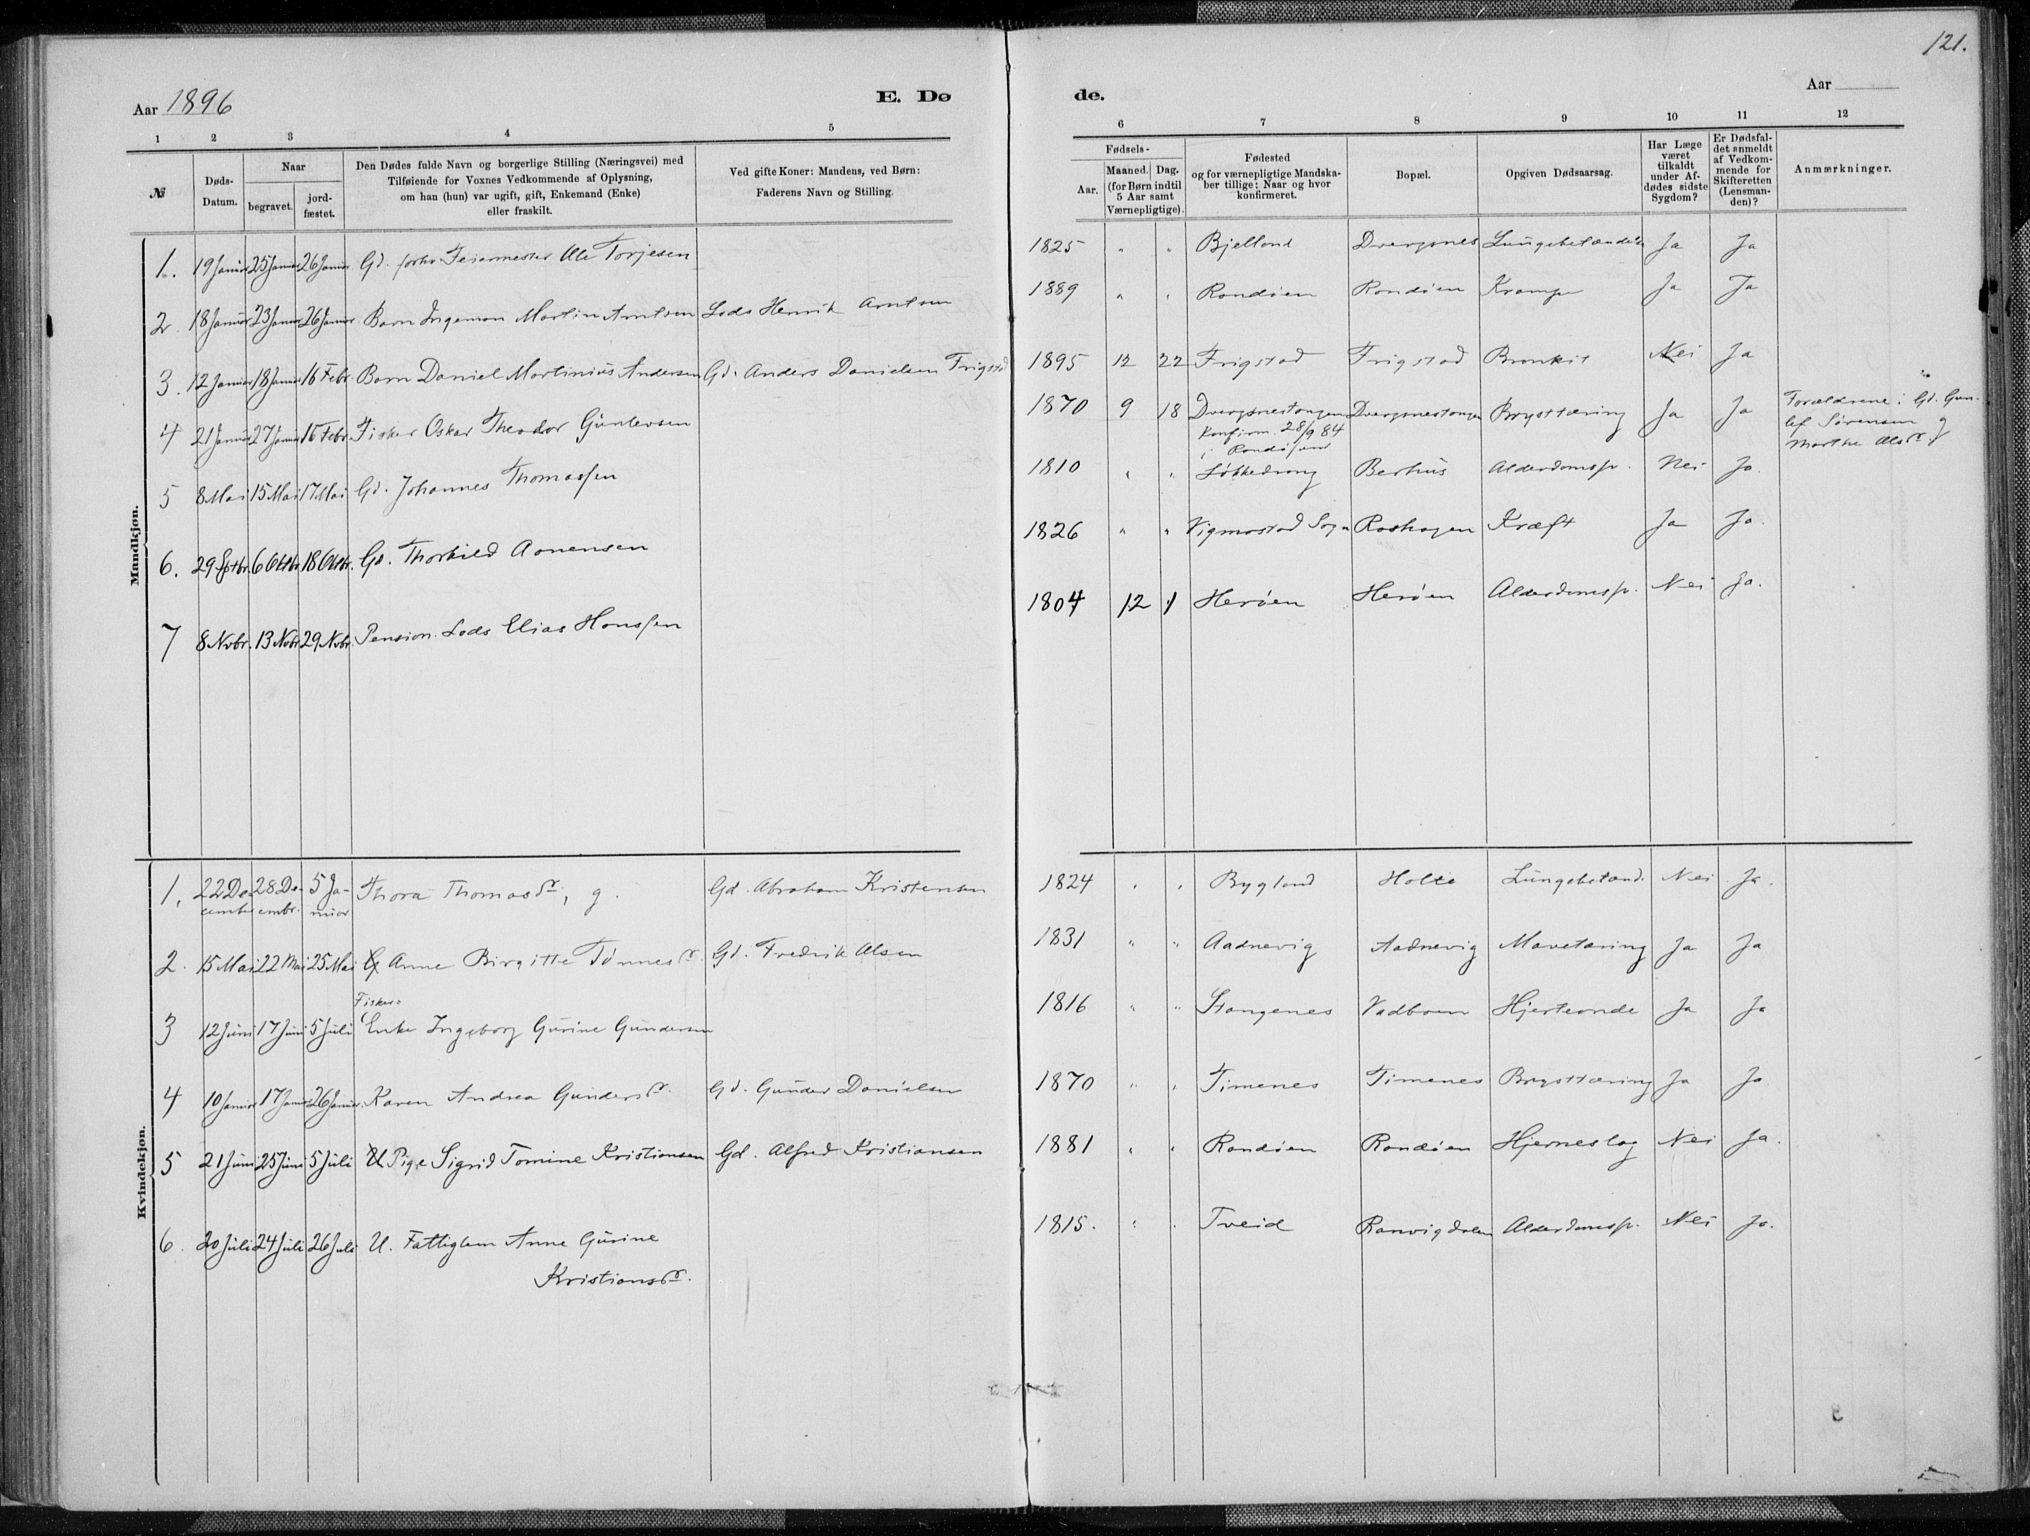 121.
Aar 1896
E. Dø
de.
Aar
1 2 3 4 5
6 7 8 9 10 11 12
№
Døds-
Datum.
Naar
begravet.
jord-
fæstet.
Den Dødes fulde Navn og borgerlige Stilling (Næringsvei) med
Tilføiende for Voxnes Vedkommende af Oplysning,
om han (hun) var ugift, gift, Enkemand (Enke)
eller fraskilt.
Ved gifte Koner: Mandens, ved Børn:
Faderens Navn og Stilling.
Fødsels-
Aar.
Maaned. Dag.
(for Børn indtil
5 Aar samt
Værnepligtige).
Fødested
og for værnepligtige Mandska-
ber tillige: Naar og hvor
konfirmeret.
Bopæl.
Opgiven Dødsaarsag.
Har Læge
været
tilkaldt
under Af-
dødes sidste
Sygdom?
Er Dødsfal-
det anmeldt
af Vedkom-
mende for
Skifteretten
(Lensman-
den)?
Anmærkninger.
Mandkjøn.
1. 19 Januar 25 Januar 26 Januar Gd. forhv. Feiermester Ole Torjesen 1825 " " Bjelland Dvergsnes Lungebetændelse Ja Ja
2. 18 Januar 23 Januar 26 Januar Barn Ingeman Martin Arntsen Lods Henrik Arntsen 1889 " " Randøen Randøen Krampe Ja Ja
3. 12 Januar 18 Januar 16 Febr. Barn Daniel Martinius Andersen Gd. Anders Danielsen Frigstad 1895 12 22 Frigstad Frigstad Bronkit Nei Ja
4 21 Januar 27 Januar 16 Febr. Fisker Oskar Theodor Gunlevsen 1870 9 18 Dvergsnestangen Dvergsnestangen Brysttæring Ja Ja Forældrene: Gd. Gun-
Konfirm. 28/9 84 lef Sørensen og
i Randøsund Marthe Olsdr.
5 8 Mai 15 Mai 17 Mai Gd. Johannes Thomassen 1810 " " Løkkedrang Berhus Alderdomssv. Nei Ja.
6. 29 Septbr. 6 Oktbr. 18 Oktbr. Gd. Thorkild Aanensen 1826 " " Vigmostad Sogn Roshagen Kræft Ja Ja.
7 8 Novbr. 13 Novbr 29 Novbr. Pension. Lods Elias Hanssen 1804 12 1 Herøen Herøen Alderdomssv. Nei Ja.
Kvindekjøn.
1. 22 De- 28 De- 5 Ja- Thora Thomasdr, g. Gd. Abraham Kristensen 1824 " " Bygland Holte Lungebetænd. Nei Ja.
cember cembr. nuar
2. 15 Mai 22 Mai 25 Mai G Anne Birgitte Tønnesdr. Gd. Fredrik Olsen 1831 " " Aadnevig Aadnevig Mavetæring Ja Ja
Fisker-
3 12 Juni 17 Juni 5 Juli Enke Ingeborg Gurine Gundersen 1816 " " Stangenes Vadboen Hjerteonde Ja Ja
4 10 Januar 17 Januar 26 Januar. Karen Andrea Gundersdr. Gd. Gunder Danielsen 1870 " " Timenes Timenes Brysttæring Ja Ja
5 21 Juni 25 Juni 5 Juli U Pige Sigrid Tomine Kristiansen Gd. Alfred Kristiansen 1881 " " Randøen Randøen Hjerneslag Nei Ja.
6. 20 Juli 24 Juli 26 Juli U. Fattiglem Anne Gurine 1815. " " Tveid Ranvigdalen Alderdomssv. Nei Ja.
Kristiansdr.